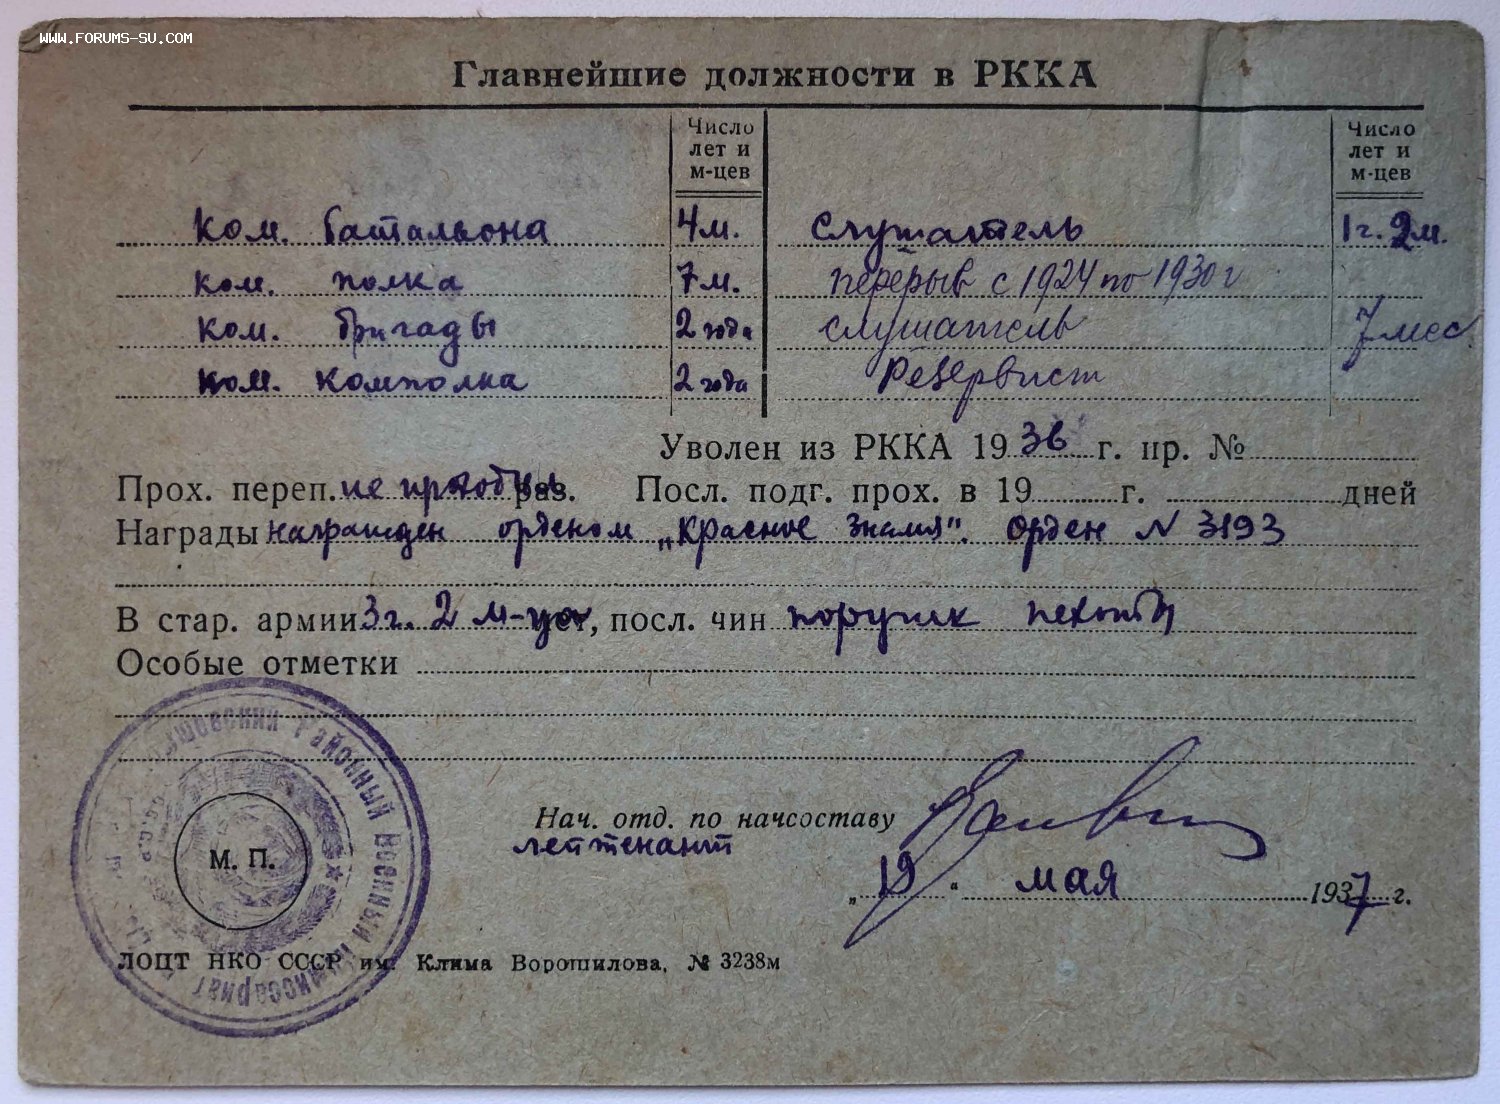 WWW.FORUMS-SU.COM
Главнейшие должности в РККА
Число лет и м-цев
Число лет и м-цев
ком. батальона 4 м. слушатель 1 г. 2 м.
ком. полка 7 м. перерыв с 1924 по 1930 г
ком. бригады 2 года слушатель 7 мес
ком. комполка 2 года Резервист
Уволен из РККА 1936 г. пр. №
Прох. переп. не проходил раз. Посл. подг. прох. в 19 г. дней
Награды награжден орденом „Красное знамя". Орден N 3193
В стар. армии 3 г. 2 м-ца, посл. чин поручик пехоты
Особые отметки
Районный Военный Комиссариат
М. П.
Нач. отд. по начсоставу
лейтенант
„19" мая 1937 г.
ЛОЦТ НКО СССР им. Клима Ворошилова. № 3238м